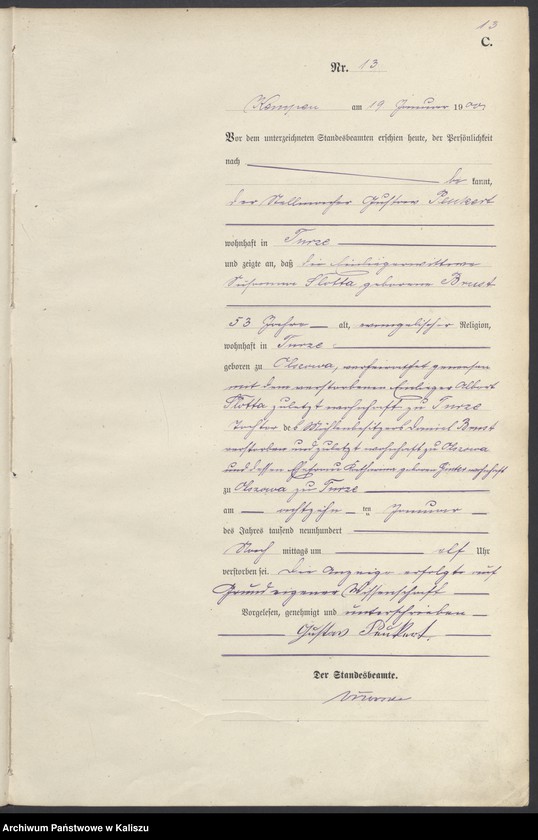 13
C.
Nr. 13
Kempen am 19 Januar 1900
Vor dem unterzeichneten Standesbeamten erschien heute, der Persönlichkeit
nach
be kannt,
der Stellmacher Gustav Peukert
wohnhaft in Turze
und zeigte an, daß die Einliegerwittwe
Susanna Slotta geborene Brust
53 Jahre alt, evangelischer Religion,
wohnhaft in Turze
geboren zu Olszowa, verheirathet gewesen
mit dem verstorbenen Einlieger Albert
Slotta zuletzt wohnhaft zu Turze
Tochter des Mühlenbesitzers Daniel Brust
verstorben und zuletzt wohnhaft zu Olszowa
und dessen Ehefrau Katharina geboren wohnhaft
zu Olszowa zu Turze
am achtzehn ten Januar
des Jahres tausend neunhundert
Nach mittags um elf Uhr
verstorben sei. Die Anzeige erfolgte auf
Grund eigener Wissenschaft
Vorgelesen, genehmigt und unterschrieben
Gustav Peukert.
Der Standesbeamte.
Archiwum Państwowe w Kaliszu